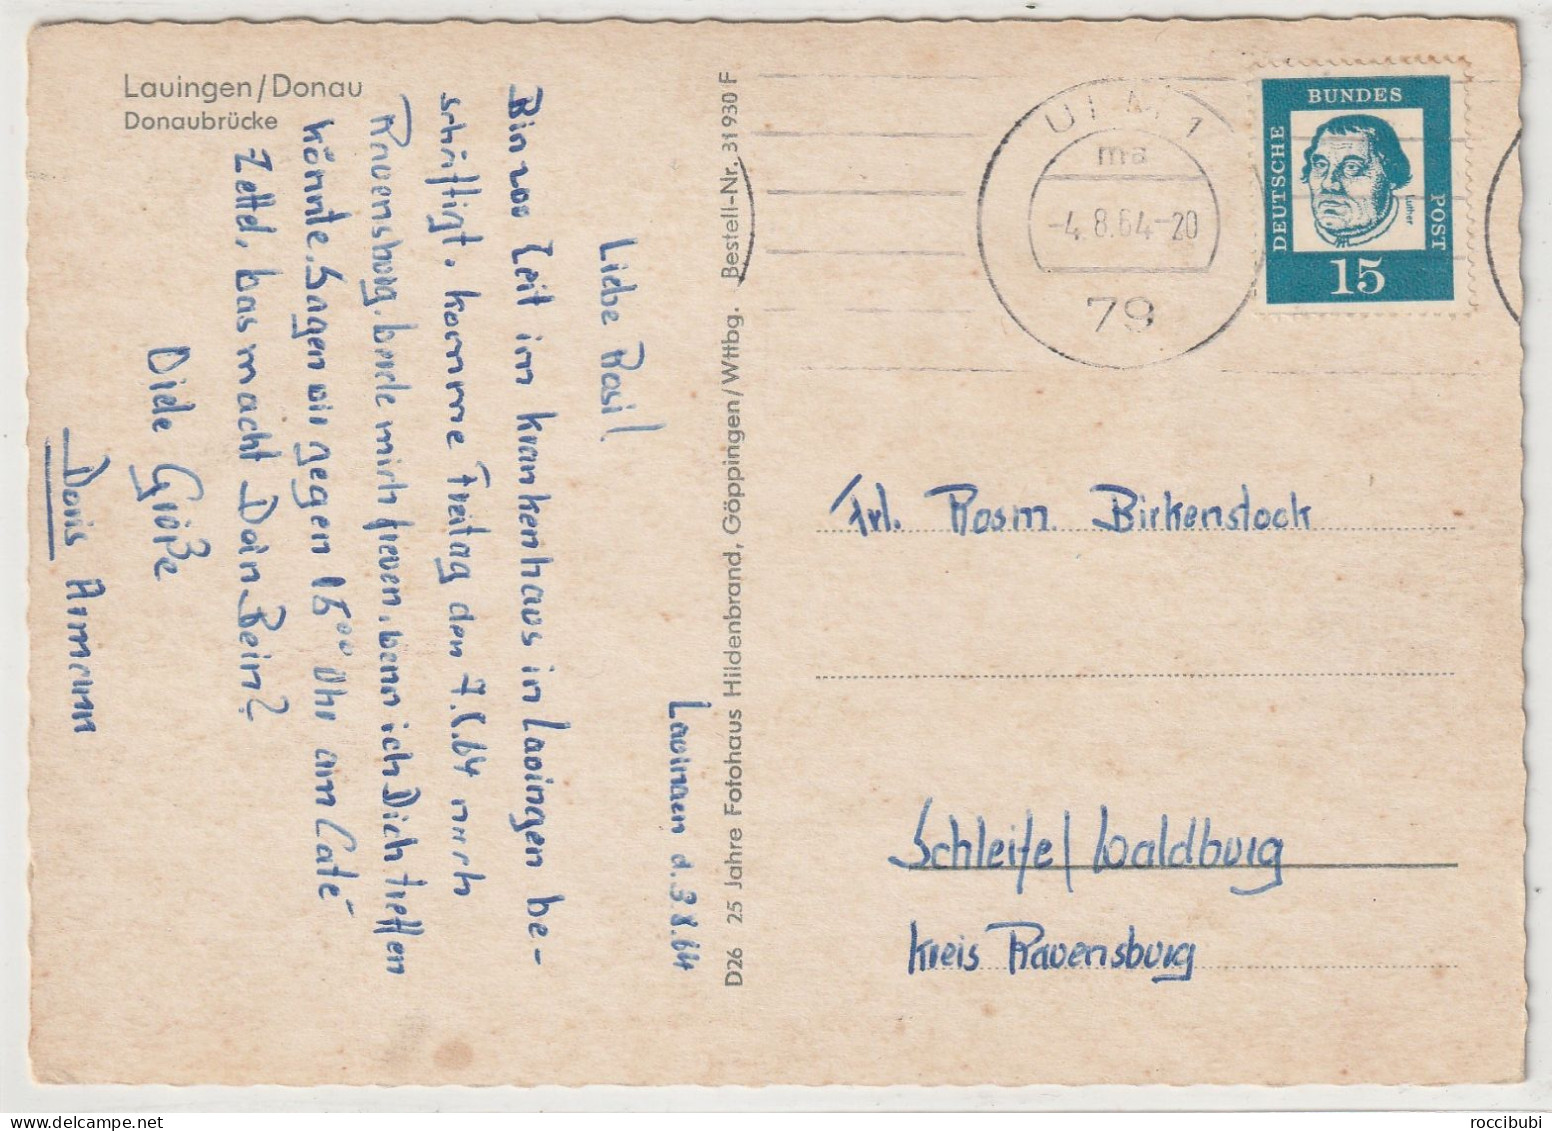 Lauingen/Donau
Donaubrücke
Lauingen d. 3.8.64
Liebe Rosi!
Bin zur Zeit im Krankenhaus in Lauingen be-
schäftigt. Komme Freitag den 7.8.64 nach
Ravensburg. Würde mich freuen, wenn ich Dich treffen
könnte. Sagen wir gegen 16⁰⁰ Uhr am Café
Zettel. Was macht Dein Bein?
Viele Grüße
Doris Armann
D26 25 Jahre Fotohaus Hildenbrand, Göppingen/Wttbg. Bestell-Nr. 31 930 F
ULM 1
ma
-4.8.64-20
79
DEUTSCHE
BUNDES
POST
Luther
15
Frl. Rosm. Birkenstock
Schleife/Waldburg
Kreis Ravensburg
roccibubi